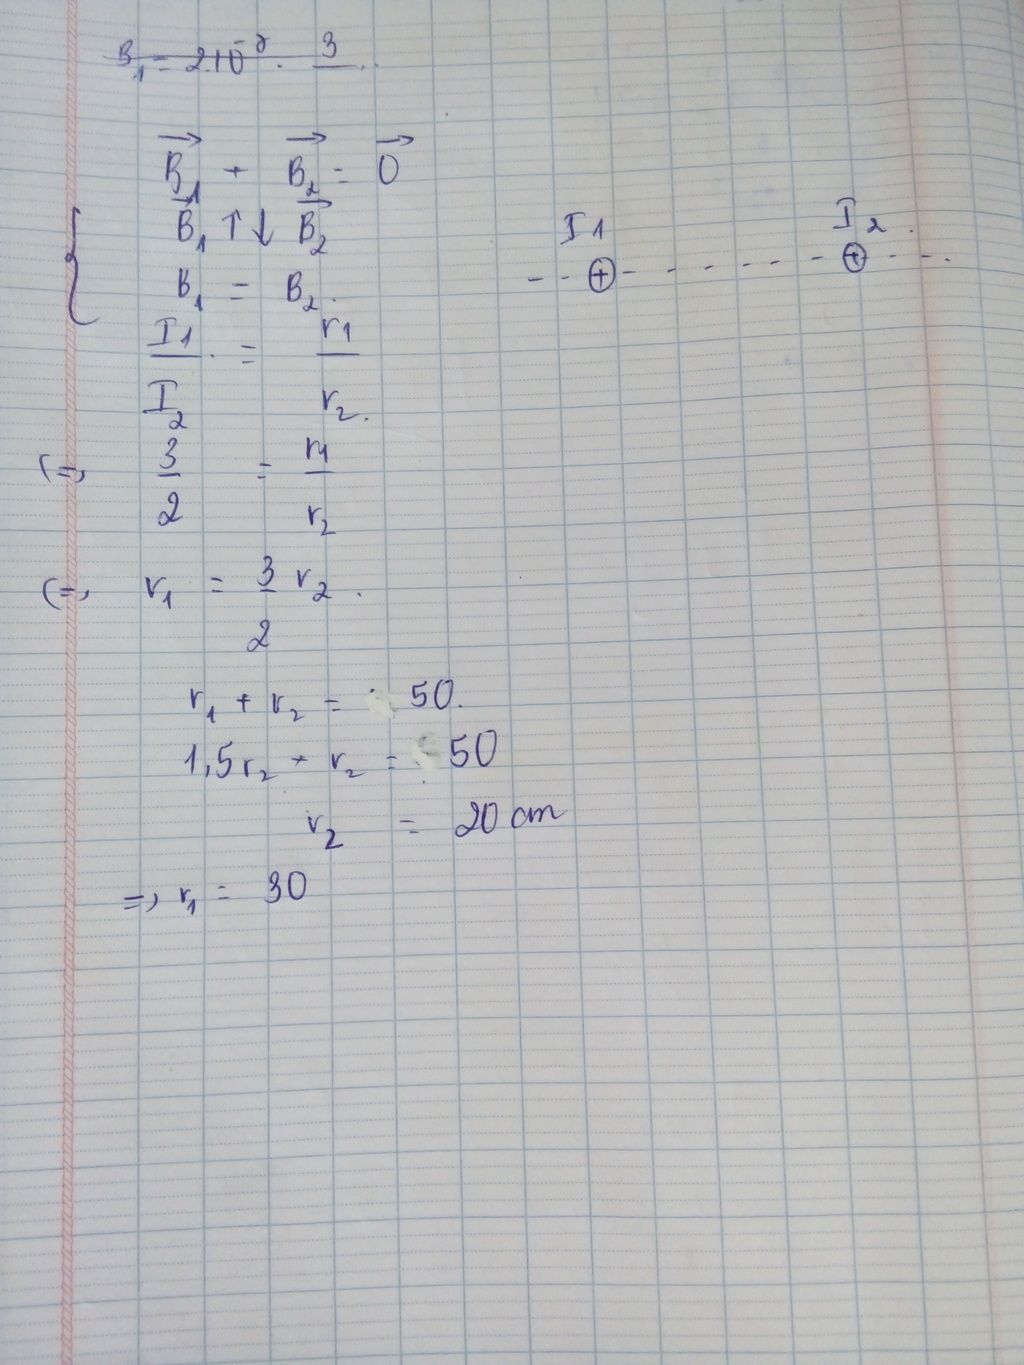 B₁ = 2.10⁻⁷ . 3
B₁ + B₂ = 0
B₁ ↑↓ B₂
I1 I₂.
B₁ = B₂.
I1/I₂ = r₁/r₂.
(=, 3/2 = r₁/r₂
(=, r₁ = 3/2 r₂.
r₁ + r₂ = 50.
1,5r₂ + r₂ = 50
r₂ = 20 cm
=, r₁ = 30